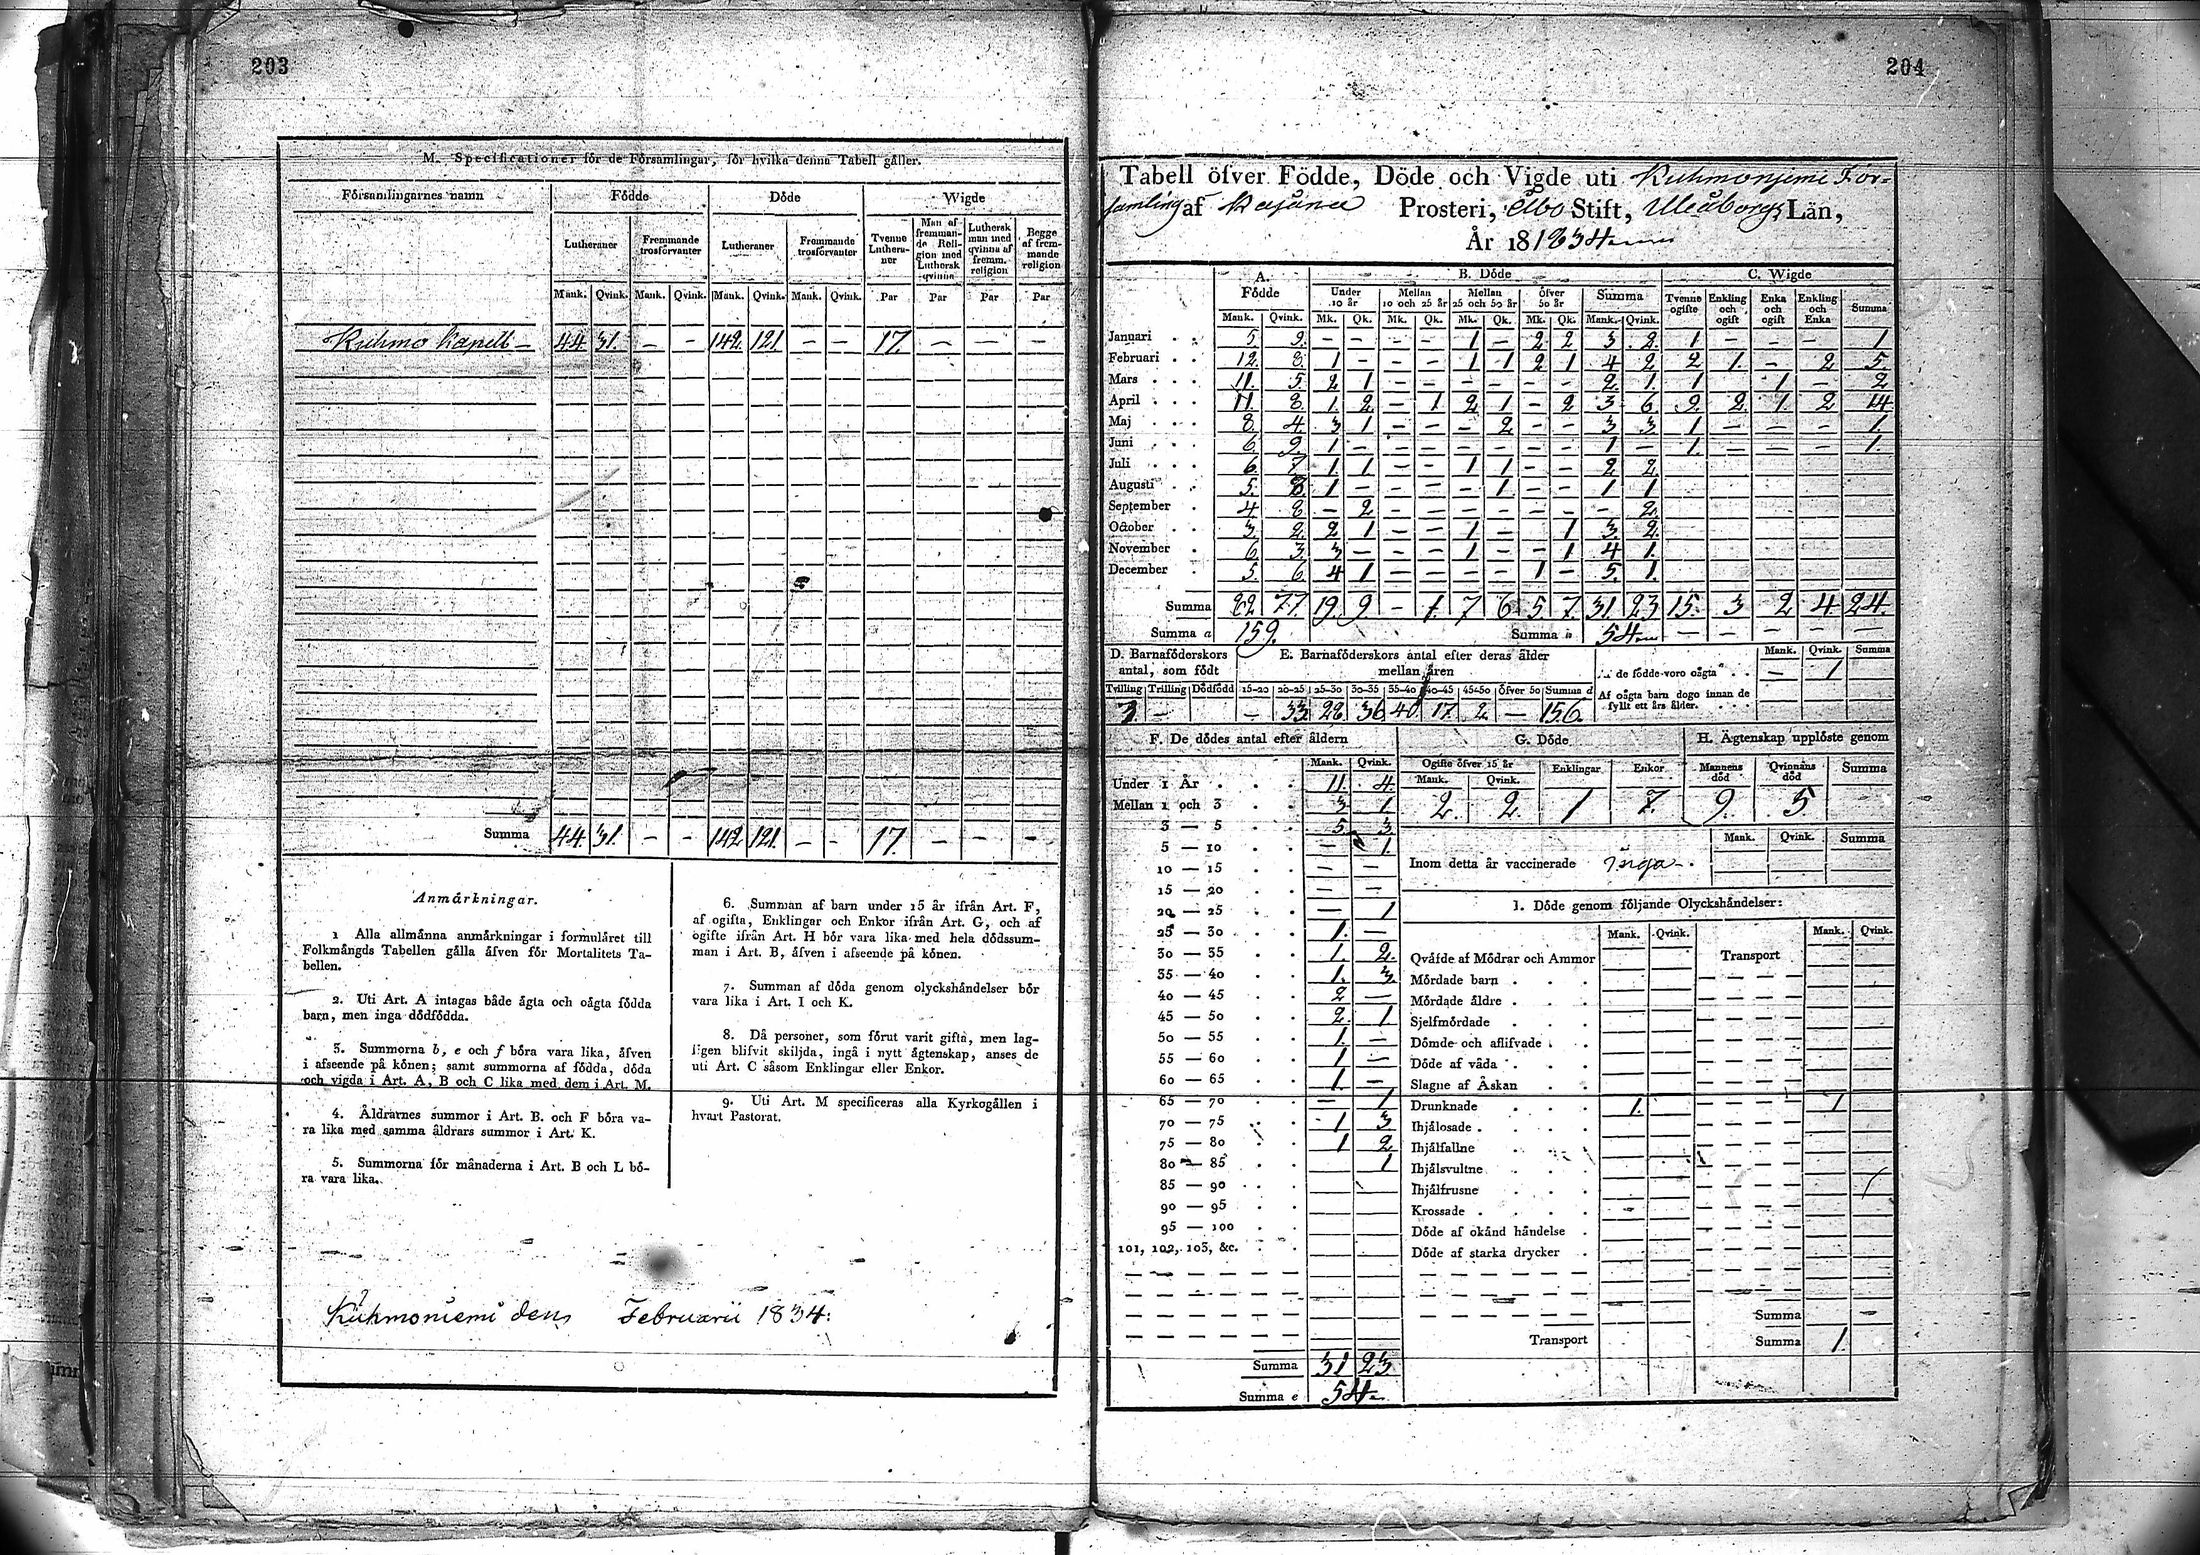 203
M. Specificationer för de Församlingar, för hvilka denna Tabell gäller.
Församlingarnes namn Födde Döde Wigde
Lutheraner Fremmande trosförvanter Lutheraner Fremmande trosförvanter Tvenne Lutheraner Man af fremmande Religion med Luthersk qvinna Luthersk man med qvinna af fremm. religion Begge af fremmande religion
Mank. Qvink. Mank. Qvink. Mank. Qvink. Mank. Qvink. Par Par Par Par
Kuhmo Kapell – 44. 31. – – 142. 121. – – 17. – – –
Summa 44. 31. – – 142. 121. – – 17. – – –
Anmärkningar.
1 Alla allmänna anmärkningar i formuläret till
Folkmängds Tabellen gälla äfven för Mortalitets Ta-
bellen.
2. Uti Art. A intagas både ägta och oägta födda
barn, men inga dödfödda.
3. Summorna b, e och f böra vara lika, äfven
i afseende på könen; samt summorna af födda, döda
och vigda i Art. A, B och C lika med dem i Art. M.
4. Åldrarnes summor i Art. B. och F böra va-
ra lika med samma åldrars summor i Art. K.
5. Summorna för månaderna i Art. B och L bö-
ra vara lika.
6. Summan af barn under 15 år ifrån Art. F,
af ogifta, Enklingar och Enkor ifrån Art. G, och af
ogifte ifrån Art. H bör vara lika med hela dödssum-
man i Art. B, äfven i afseende på könen.
7. Summan af döda genom olyckshändelser bör
vara lika i Art. I och K.
8. Då personer, som förut varit gifta, men lag-
ligen blifvit skiljda, ingå i nytt ägtenskap, anses de
uti Art. C såsom Enklingar eller Enkor.
9. Uti Art. M specificeras alla Kyrkogällen i
hvart Pastorat.
Kuhmoniemi den Februarii 1834.
204
Tabell öfver Födde, Döde och Vigde uti Kuhmoniemi För-
samling af Kajana Prosteri, Åbo Stift, Uleåborgs Län,
År 181834
A. Födde B. Döde C. Wigde
Under 10 år Mellan 10 och 25 år Mellan 25 och 50 år Öfver 50 år Summa Tvenne ogifte Enkling och ogift Enka och ogift Enkling och Enka Summa
Mank. Qvink. Mk. Qk. Mk. Qk. Mk. Qk. Mk. Qk. Mank. Qvink.
Januari 5. 9. – – – – 1 – 2 2 3 2. 1 – – – 1
Februari 12. 8. 1 – – – 1 1 2 1 4 2 2 1. – 2 5.
Mars 11. 5. 2 1 – – – – – – 2. 1. 1 1 – 2
April 11. 8. 1. 2 – 1. 2 1 – 2 3 6. 9. 2. 1. 2 14.
Maj 8. 4. 3 1 – – – 2 – – 3 3 1 – – – 1.
Juni 6. 9. 1 – – – – – – – 1 – 1. – – – 1.
Juli 6. 7. 1. 1. – – 1 1 – – 2 2.
Augusti 5. 8. 1 – – – – 1 – – 1 1
September 4 8 – 2 – – – – – – – 2.
October 3. 2. 2 1 – – 1 – 1 3. 2.
November 6. 3. 3 – – – 1 – – 1 4 1.
December 5. 6. 4 1 – – – – 1 – 5. 1.
Summa 82. 77. 19. 9. – 1. 7 6. 5 7. 31. 23 15. 3 2 4. 24.
Summa a 159. Summa b 54 – – – – –
D. Barnaföderskors antal, som födt
Tvilling Trilling Dödfödd
3 –
E. Barnaföderskors antal efter deras ålder mellan åren
15-20 20-25 25-30 30-35 35-40 40-45 45-50 Öfver 50 Summa d
– 33. 28. 36 40 17. 2 – 156.
Mank. Qvink. Summa
de födde voro oägta – 1
Af oägta barn dogo innan de
fyllt ett års ålder.
F. De dödes antal efter åldern
Mank. Qvink.
Under 1 År 11. 4.
Mellan 1 och 3 3 1
3 – 5 5. 3.
5 – 10 – 1.
10 – 15 – –
15 – 20 – –
20 – 25 – 1
25 – 30 1. –
30 – 35 1. 2.
35 – 40 1. 3.
40 – 45 2 –
45 – 50 2. 1
50 – 55 1. –
55 – 60 1 –
60 – 65 1. –
65 – 70 – 1
70 – 75 1 3
75 – 80 1 2
80 – 85 1
85 – 90
90 – 95
95 – 100
101, 102, 103, &c.
Summa 31 23
Summa e 54
G. Döde
Ogifte öfver 15 år Enklingar Enkor
Mank. Qvink.
2. 2. 1 7.
H. Ägtenskap upplöste genom
Mannens död Qvinnans död Summa
9. 5
Mank. Qvink. Summa
Inom detta år vaccinerade Inga
I. Döde genom följande Olyckshändelser:
Mank. Qvink. Mank. Qvink.
Qväfde af Mödrar och Ammor Transport
Mördade barn
Mördade äldre
Sjelfmördade
Dömde och aflifvade
Döde af våda
Slagne af Åskan
Drunknade 1. 1
Ihjälosade
Ihjälfallne
Ihjälsvultne
Ihjälfrusne
Krossade
Döde af okänd händelse
Döde af starka drycker
Summa –
Transport Summa 1.